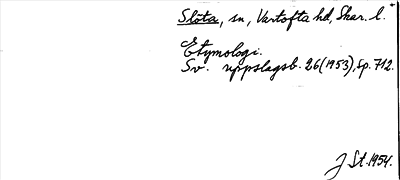 Slöta, sn, Vartofta hd, Skar. l.
Etymologi.
Sv. uppslagsb. 26(1953), sp. 712.
J St. 1954.